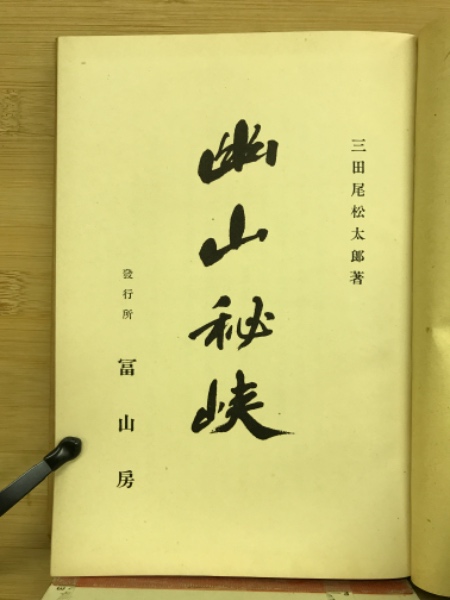 三田尾松太郎著
幽山秘峡
發行所 冨山房